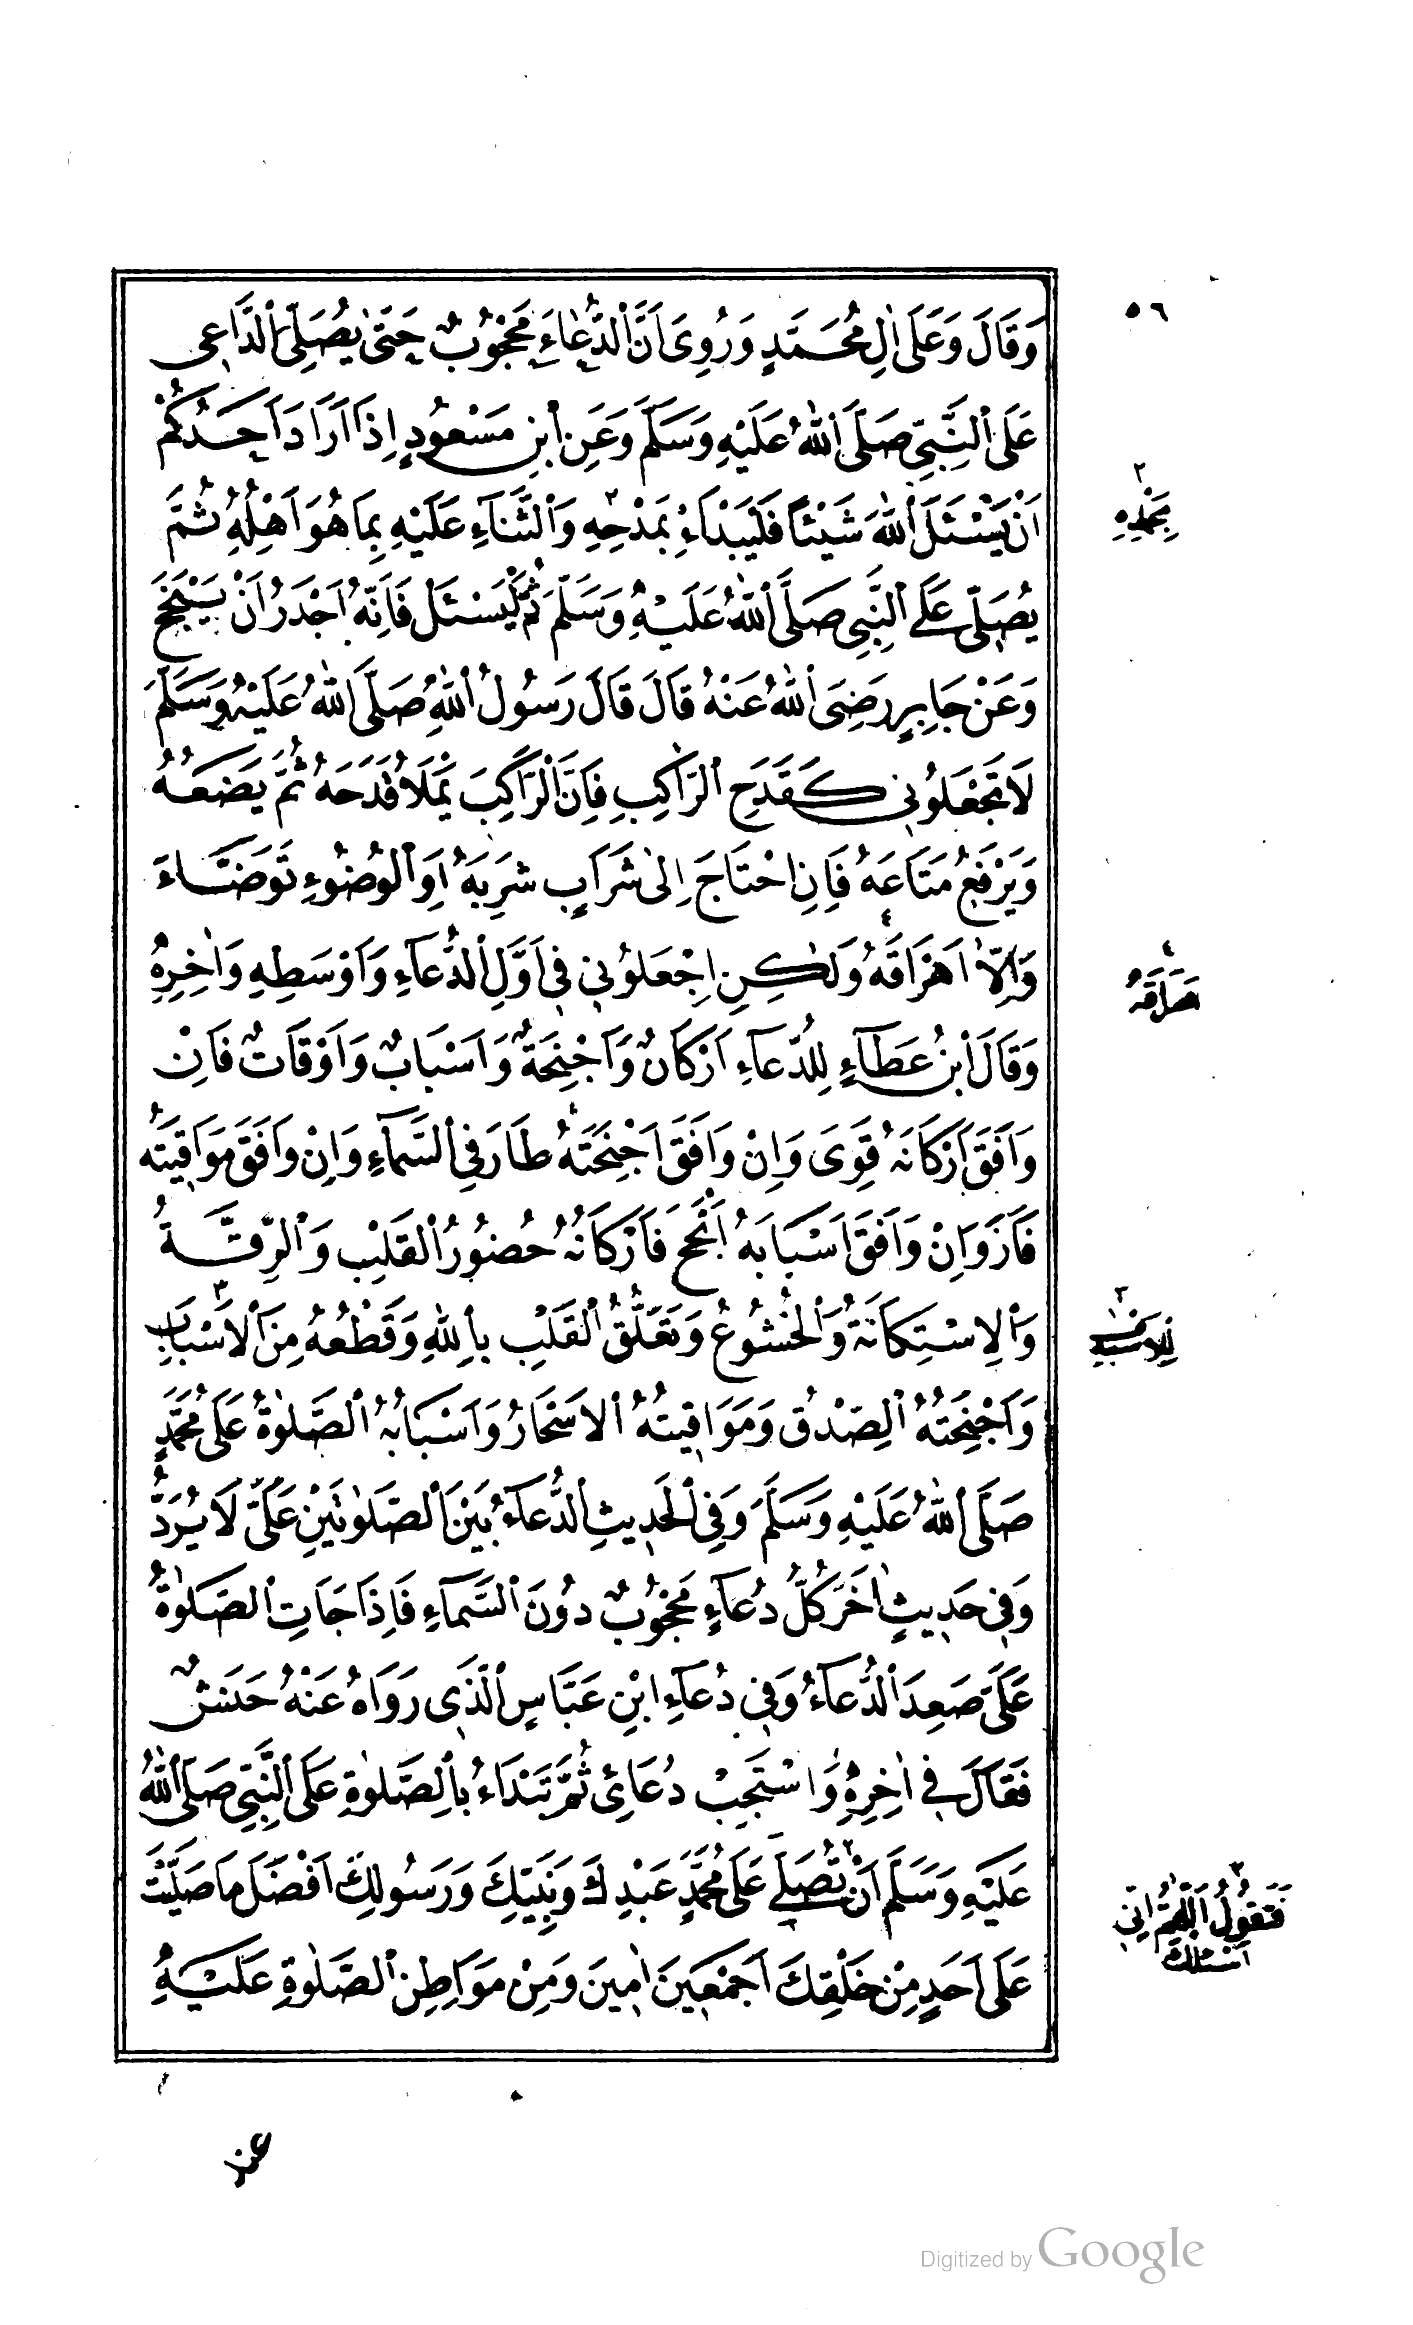 ٥٦
وَقَالَ وَعَلَى اٰلِ مُحَمَّدٍ وَرُوِىَ اَنَّ الدُّعَاءَ مَحْجُوبٌ حَتّٰى يُصَلِّىَ الدَّاعِى
عَلَى النَّبِىِّ صَلَّى اللّٰهُ عَلَيْهِ وَسَلَّمَ وَعَنِ ابْنِ مَسْعُودٍ اِذَا اَرَادَ اَحَدُكُمْ
اَنْ يَسْئَلَ اللّٰهَ شَيْئًا فَلْيَبْدَاءْ بِمَدْحِهِ٢ وَالثَّنَآءِ عَلَيْهِ بِمَا هُوَ اَهْلُهُ ثُمَّ
٢
بِحَمْدِهِ
يُصَلِّى عَلَى النَّبِىِّ صَلَّى اللّٰهُ عَلَيْهِ وَسَلَّمَ ثُمَّ لْيَسْئَلْ فَاِنَّهُ اَجْدَرُ اَنْ يَنْجَحَ
وَعَنْ جَابِرٍ رَضِىَ اللّٰهُ عَنْهُ قَالَ قَالَ رَسُولُ اللّٰهِ صَلَّى اللّٰهُ عَلَيْهِ وَسَلَّمَ
لَا تَجْعَلُونِى كَقَدَحِ الرَّاكِبِ فَاِنَّ الرَّاكِبَ يَمْلَاُ قَدَحَهُ ثُمَّ يَضَعُهُ
وَيَرْفَعُ مَتَاعَهُ فَاِنِ احْتَاجَ اِلٰى شَرَابٍ شَرِبَهُ اَوِ الْوُضُوءِ تَوَضَّاءَ
وَاِلَّا اَهْرَاقَهُ٤ وَلٰكِنِ اِجْعَلُونِى فِى اَوَّلِ الدُّعَآءِ وَاَوْسَطِهِ وَاٰخِرِهِ
٤
هَرَاقَهُ
وَقَالَ ابْنُ عَطَآءٍ لِلدُّعَآءِ اَرْكَانٌ وَاَجْنِحَةٌ وَاَسْبَابٌ وَاَوْقَاتٌ فَاِنْ
وَافَقَ اَرْكَانَهُ قَوِىَ وَاِنْ وَافَقَ اَجْنِحَتَهُ طَارَ فِى السَّمَآءِ وَاِنْ وَافَقَ مَوَاقِيتَهُ
فَازَ وَاِنْ وَافَقَ اَسْبَابَهُ اَنْجَحَ فَاَرْكَانُهُ حُضُورُ الْقَلْبِ وَالرِّقَّةُ
وَالِاسْتِكَانَةُ وَالْخُشُوعُ وَتَعَلُّقُ الْقَلْبِ بِاللّٰهِ وَقَطْعُهُ مِنَ٣ الْاَسْبَابِ
وَاَجْنِحَتُهُ الصِّدْقُ وَمَوَاقِيتُهُ الْاَسْحَارُ وَاَسْبَابُهُ الصَّلٰوةُ عَلَى مُحَمَّدٍ
صَلَّى اللّٰهُ عَلَيْهِ وَسَلَّمَ وَفِى الْحَدِيثِ الدُّعَآءُ بَيْنَ الصَّلٰوتَيْنِ عَلَىَّ لَا يُرَدُّ
وَفِى حَدِيثٍ اٰخَرَ كُلُّ دُعَآءٍ مَحْجُوبٌ دُونَ السَّمَآءِ فَاِذَا جَاتِ الصَّلٰوةُ
عَلَىَّ صَعِدَ الدُّعَآءُ وَفِى دُعَآءِ ابْنِ عَبَّاسٍ الَّذِى رَوَاهُ عَنْهُ حَنَشٌ
فَقَالَ فِى اٰخِرِهِ وَاسْتَجِبْ دُعَائِى ثُمَّ تَبْدَاءُ بِالصَّلٰوةِ عَلَى النَّبِىِّ صَلَّى اللّٰهُ
عَلَيْهِ وَسَلَّمَ اَنْ٢ تُصَلِّىَ عَلَى مُحَمَّدٍ عَبْدِكَ وَنَبِيِّكَ وَرَسُولِكَ اَفْضَلَ مَا صَلَّيْتَ
فَتَقُولُ اَللّٰهُمَّ اِنِّى
اَسْئَلُكَ
عَلَى اَحَدٍ مِنْ خَلْقِكَ اَجْمَعِينَ اٰمِينَ وَمِنْ مَوَاطِنِ الصَّلٰوةِ عَلَيْهِ
عند
Digitized by Google